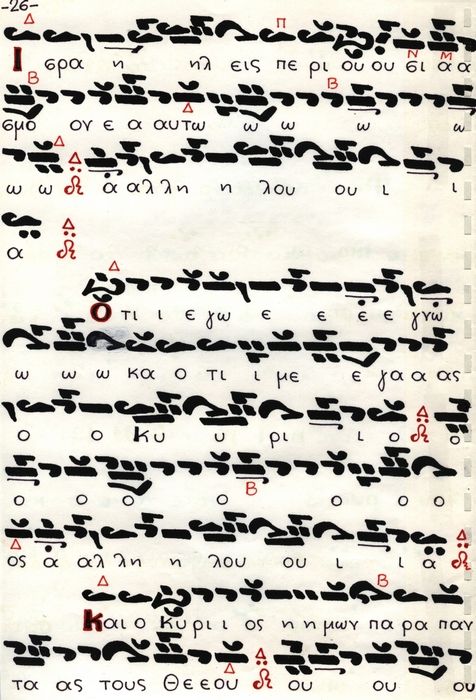 -26-
Ι σρα η ηλ εις πε ρι ου ου σι α α
σμο ον ε α αυτω ω ω ω ω
ω ω α αλ λη η λου ου ι ι
α
Ο τι ι ε γω ε ε ε ε γνω
ω ω ω κα ο τι ι με ε γα α ας
ο ο κυ υ ρι ι ο ο
ο ο ο ο ο ο ο
ος α αλ λη η λου ου ι ι α
Και ο κυρι ι ος η η μων πα ρα παν
τα ας τους Θε ε ου ου ου ου